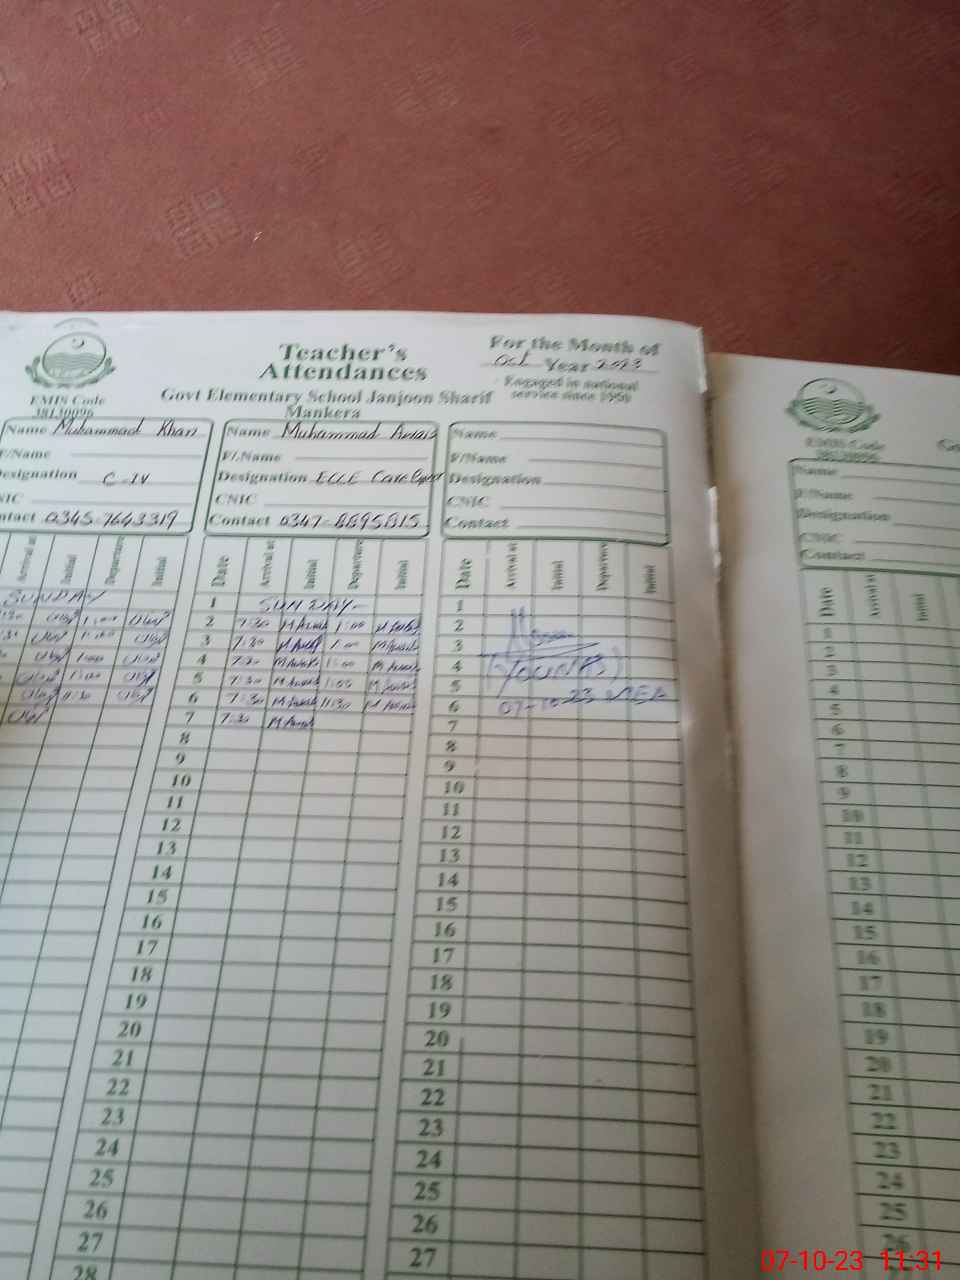 Teacher's
Attendances
For the Month of
Oct Year 2023
Engaged in national
service since 1950
EMIS Code
38130096
Govt Elementary School Janjoon Sharif
Mankera
Name Muhammad Khan
F/Name
Designation C-IV
CNIC
Contact 0345-7643319
Name Muhammad
F/.Name
Designation ECCE Care
CNIC
Contact 0347-8895815
Name
F/Name
Designation
CNIC
Contact
Arrival at Initial Departure Initial
SUNDAY
Date Arrival at Initial Departure Initial
1 SUNDAY
2 7:30 1:00
3 7:30 1:00
4 7:30 1:00
5 7:30 1:00
6 7:30 11:30
7 7:30
8
9
10
11
12
13
14
15
16
17
18
19
20
21
22
23
24
25
26
27
28
Date Arrival at Initial Departure Initial
1
2
3
4
5
6
7
8
9
10
11
12
13
14
15
16
17
18
19
20
21
22
23
24
25
26
27
(YOUNAS)
07-10-23 MEA
EMIS Code
38130096
Name
F/Name
Designation
CNIC
Contact
Date Arrival at Initial
1
2
3
4
5
6
7
8
9
10
11
12
13
14
15
16
17
18
19
20
21
22
23
24
25
26
07-10-23 11:31